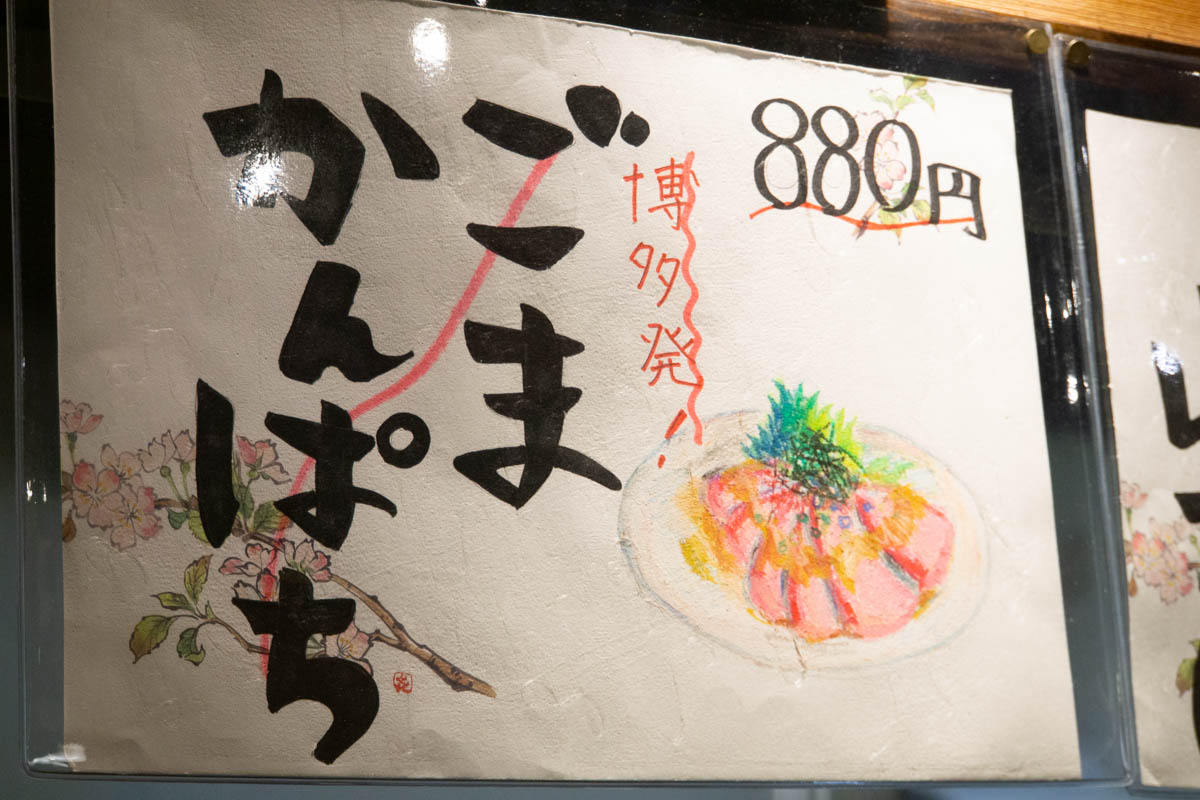 880円
博多発!
ごま
かんぱち